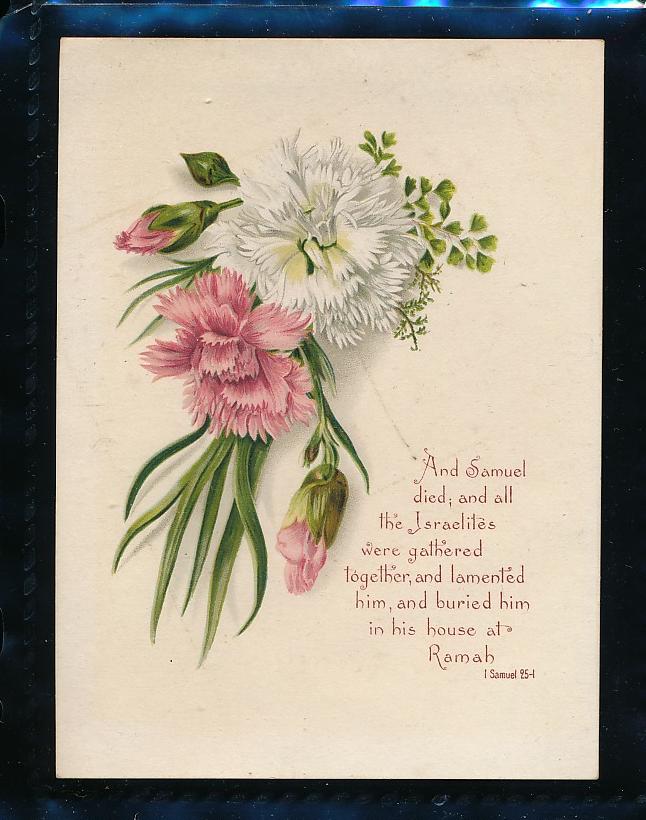 And Samuel
died; and all
the Israelites
were gathered
together, and lamented
him, and buried him
in his house at
Ramah
1 Samuel 25-1